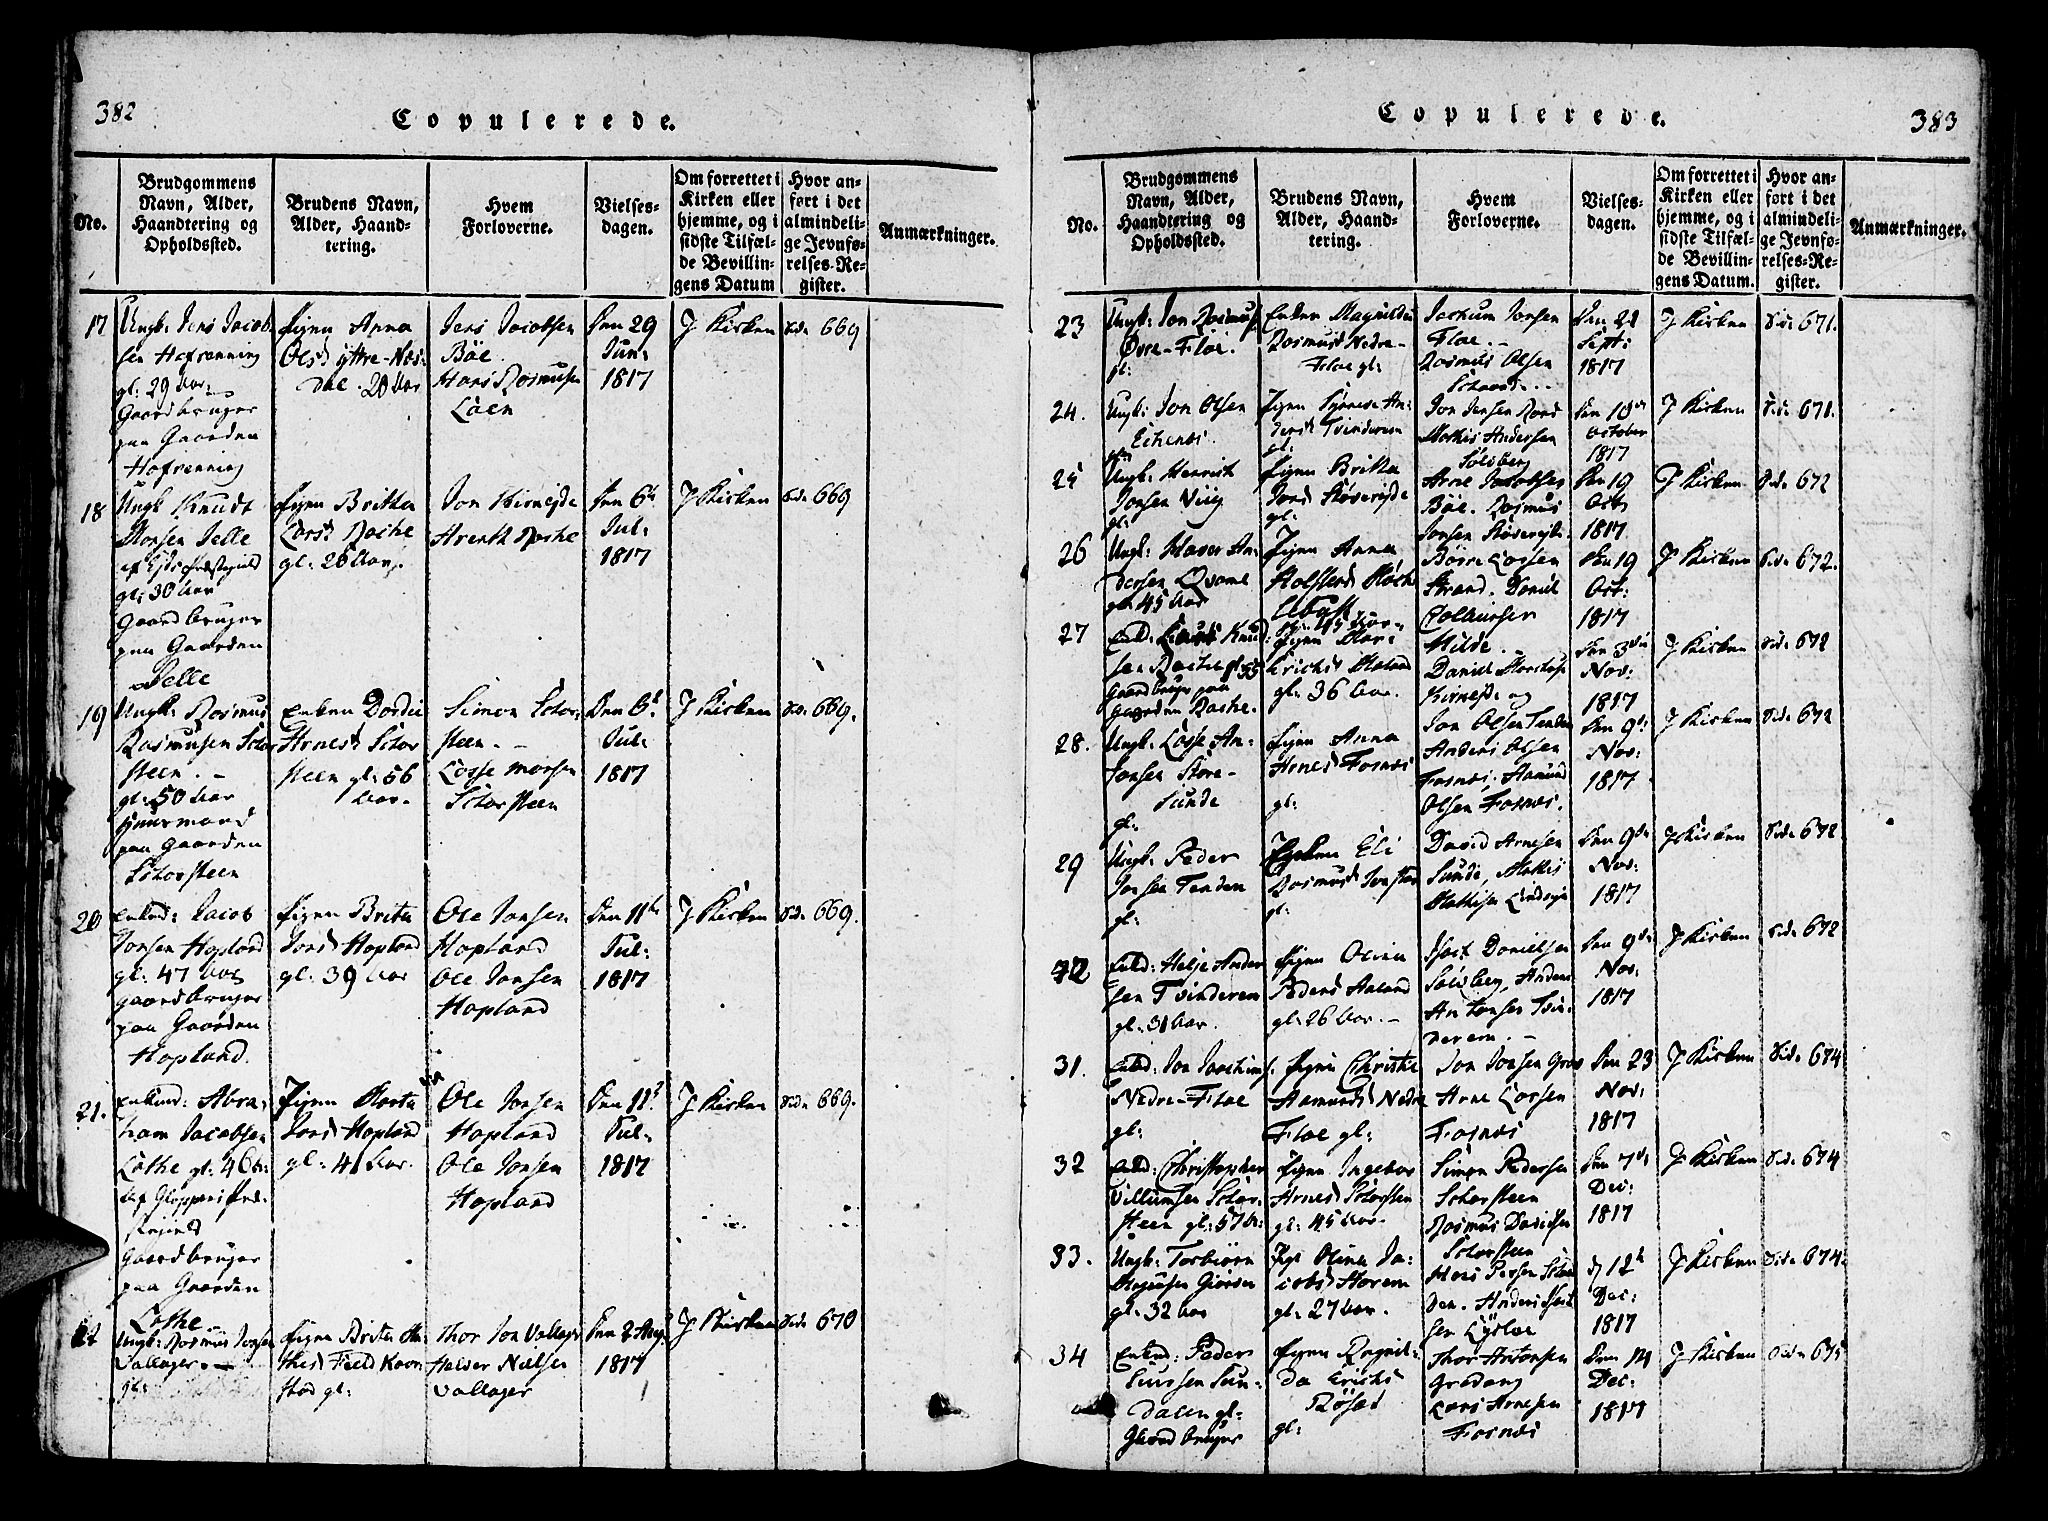 382
Copulerede.
No.
Brudgommens
Navn, Alder,
Haandtering og
Opholdssted.
Brudens Navn,
Alder, Haand-
tering.
Hvem
Forloverne.
Vielses-
dagen.
Om forrettet i
Kirken eller
hjemme, og i
sidste Tilfæl-
de Bevillin-
gens Datum
Hvor an-
ført i det
almindeli-
ge Jevnfø-
relses-Re-
gister.
Anmærkninger.
17
Ungk: Jens Jacob
sen Hafrenning
gl: 29 Aar.
Gaardbruger
paa Gaarden
Hafrenning
Pigen Anna
Olsd yttre-Næs-
dal. 20 Aar
Jens Jacobsen
Böe.
Hans Rasmusen
Loen
Den 29
Jun:
1817
J Kirken
Side 669
18
Ungk Knudt
Monsen Jelle
af Eids Præstegield
gl: 30 Aar
Gaardbruger
paa Gaarden
Jelle
Pigen Britha
Larsd Rache
gl: 26 Aar.
Jon
Arent Rache
Den 6te
Jul:
1817
J Kirken
Side 669
19
Ungk: Rasmus
Rasmusen Schor
steen.
gl: 50 Aar
Huusmand
paa Gaarden
Schorsteen
Enken Dordei
Arnesd Schor
steen gl: 56
Aar.
Simon Schor
steen.
Lasse Monsen
Schorsteen
Den 6t
Jul:
1817
J Kirken
Side 669.
20
Enkmd: Jacob
Jonsen Hopland
gl: 47 Aar
gaardbruger
paa Gaarden
Hopland.
Pigen Brita
Jonsd Hopland
gl: 39 Aar
Ole Jonsen
Hopland
Ole Jonsen
Hopland
Den 11te
Jul:
1817
J Kirken
Side 669.
21.
Enkmd: Abra-
ham Jacobsen
Lothe gl: 46 Aar
af Gloppens Præ-
stegield
Gaardbruger
paa Gaarden
Lothe
Pigen Marta
Jonsd Hopland
gl: 41 Aar.
Ole Jonsen
Hopland
Ole Jonsen
Hopland
Den 11t
Jul:
1817
J Kirken
Side 669.
22
Ungk: Rasmus Jonsen
Vallager.
gl:
Pigen Brita Ma-
thisd
gl:
Thor Jon Vallager
Halder Nielsen
Vallager
Den 2 Aug.
1817
J Kirken
Side 670
383
Copulerede.
No.
Brudgommens
Navn, Alder,
Haandtering og
Opholdssted.
Brudens Navn,
Alder, Haand-
tering.
Hvem
Forloverne.
Vielses-
dagen.
Om forrettet i
Kirken eller
hjemme, og i
sidste Tilfæl-
de Bevillin-
gens Datum.
Hvor an-
ført i det
almindeli-
ge Jevnfø-
relses-Re-
gister.
Anmærkninger.
23
Ungk: Jon Rasmus
Övre-Floe.
gl:
Enken Magnilda
Rasmusd Nedre-
Floe gl:
Jochum Jonsen
Floe.
Rasmus Olsen
Den 21
Sept:
1817
J Kirken
Side 671.
24.
Ungk: Jon Olsen
Eikenes.
Pigen Synneve An-
dersd Tvinderem
gl:
Jon Jensen Nord
Mathis Andersen
Solsberg
Den 10de
October
1817
J Kirken
Side 671.
25
Ungk: Henrich
Jonsen Viig
gl:
Pigen Britha
Jonsd
gl:
Arne Jacobsen
Böe. Rasmus
Jonsen
Den 19
Oct
1817
J Kirken
Side 672
26
Ungk: An-
dersen Qvame
gl: 45 Aar
Pigen Anna
gl: 45 Aar
Börre Larsen
Strand. Daniel
Den 19
Oct:
1817
J Kirken
Side 672.
27
Enkd: Knud
sen Rache gl 55
Gaardbruger paa
gaarden Rache.
Pigen Mari
Erichsd
gl: 36 Aar.
Milde.
Daniel
og
Den 3die
Nov:
1817
J Kirken
Side 672
28.
Ungk: Lasse An-
Jonsen Store-
Sunde
gl:
Pigen Anna
Arnesd Fosnæs
gl:
Jon Olsen Tenden
Anders Olsen
Fosnæs, Aamund
Olsen Fosnæs.
Den 9de
Nov:
1817
J Kirken
Side 672
29
Ungk: Peder
Jonsen Tenden
gl:
Pigen Eli
Rasmusd
gl:
David Arnesen
Sunde, Mathis
Mathisen
Den 9de
Nov:
1817
J Kirken
Side 672
Enkd: Helje Ander
sen Tvinderem
gl: 31 Aar.
Pigen Olina
Pedersd Aaland
gl: 26 Aar.
Danielsen
Solsberg, Anders
Antonsen Tvin-
derem.
Den 9de
Nov:
1817
J Kirken
Side 672
31.
Enkd: Jon Jochims.
Nedre-Floe
gl:
Pigen Christi
Aamundsd Nedre
Floe gl:
Jon Jonsen
Arne Larsen
Fosnæs
Den 23
Nov:
1817
J Kirken
Side 674
32
Enkd: Christopher
Villumsen Schor-
steen gl: 57 Aar
Pigen Ingebor
Arnesd Schorsteen
gl: 45 Aar.
Simon Pedersen
Schorsteen
Rasmus Davidsen
Schorsteen
Den 7de
Dec:
1817
J Kirken
Side 674
33.
Ungk: Torbiörn
gl: 32 Aar
Pige Olina Ja-
cobsd
gl: 27 Aar.
Hans
Anders
d 12te
Dec:
1817
J Kirken
Side 674.
34
Enkmd: Peder
Sun-
dalen gl:
Gaardbruger
Pigen Ragnil-
da Erichsd
gl:
Thor Antonsen
Lars Arnesen
Fosnæs
Den 14
Dec:
1817
J Kirken
Side 675